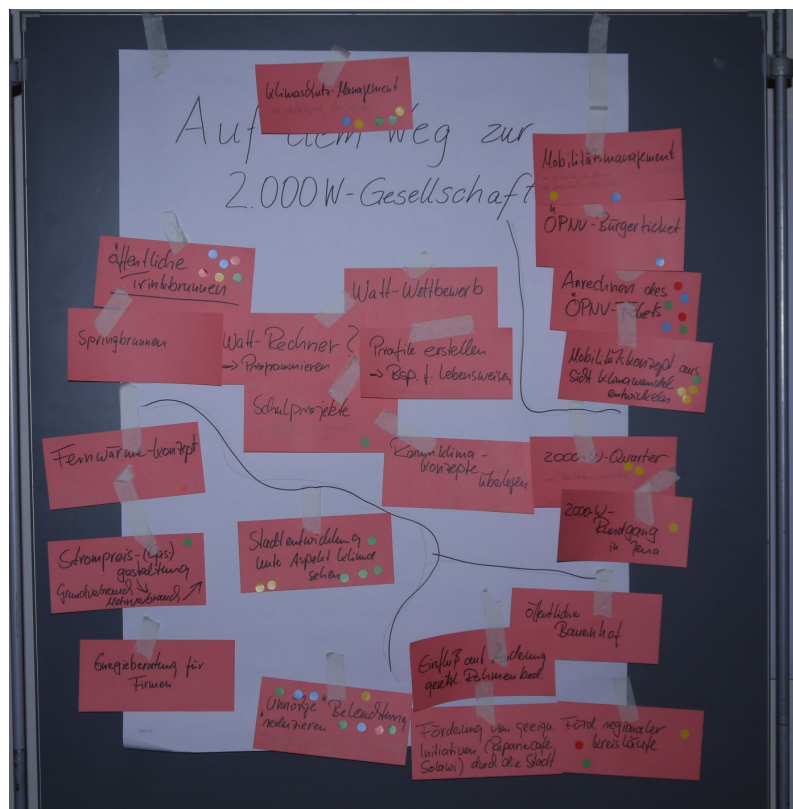 Klimaschutz-Management
Auf dem Weg zur
2.000W-Gesellschaft
Mobilitätsmanagement
ÖPNV-Bürgerticket
Anrechnen des
ÖPNV-Tickets
Mobilitätskonzept aus
Sicht Klimawandel
entwickeln
öffentliche
Trinkbrunnen
Springbrunnen
Watt-Wettbewerb
Watt-Rechner?
→ Programmieren
Profile erstellen
→ Bsp. f. Lebensweisen
Schulprojekte
Fernwärme-Konzept
Raumklima-
konzepte
überlegen
2000-W-Quartier
2000-W-
Rundgang
in Jena
Strompreis-(Gas)
gestaltung
Grundverbrauch ↘
Mehrverbrauch ↗
Stadtentwicklung
unter Aspekt Klima
sehen
Energieberatung für
Firmen
"Unnötige" Beleuchtung
reduzieren
öffentlicher
Bauernhof
Einfluß auf Änderung
gesetzl. Rahmenbed.
Förderung von geeign.
Initiativen (Reparaturcafe,
Solawi) durch die Stadt
Förd. regionaler
Kreisläufe